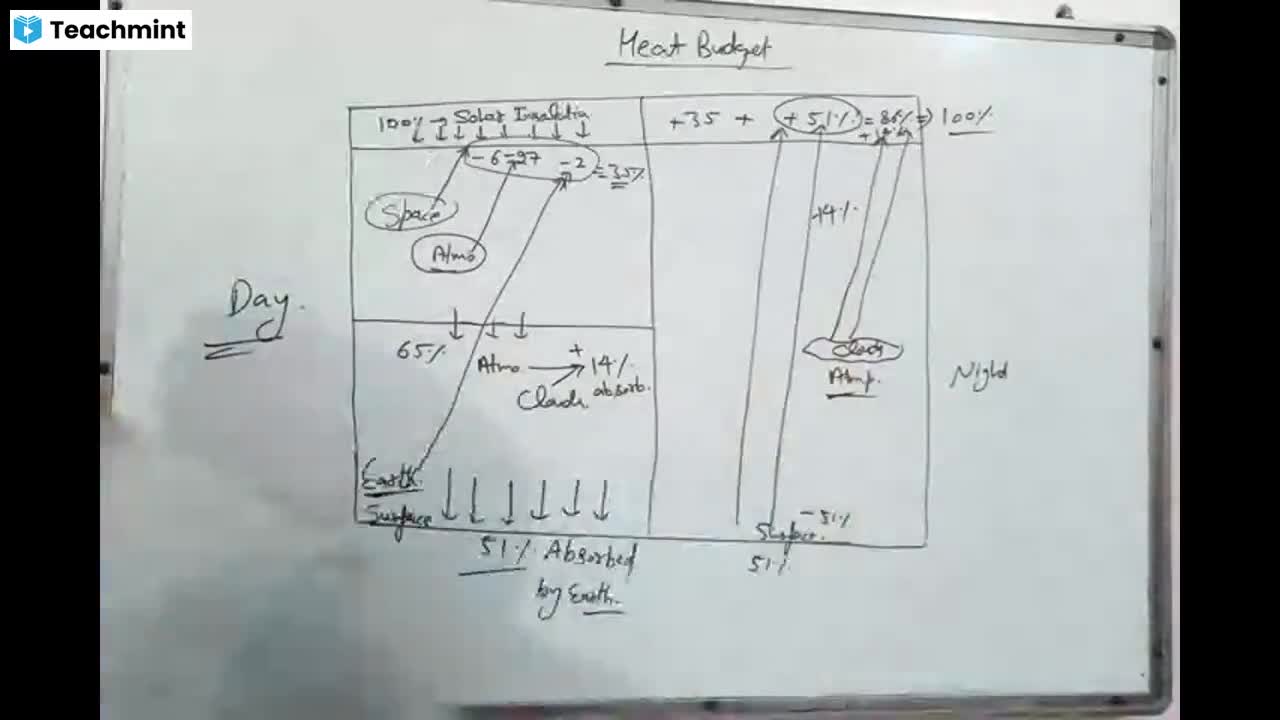 Teachmint
Heat Budget
100% → Solar Insolation
+35 + +51% = 86% ⇒ 100%
+14%
-6 -27 -2 = 35%
Space
Atmo
14%
Day.
65%
Atmo → + 14%
Clouds absorb.
Clouds
Atmp.
Night
Earth
Surface
51% Absorbed
by Earth.
-51%
Surface.
51%